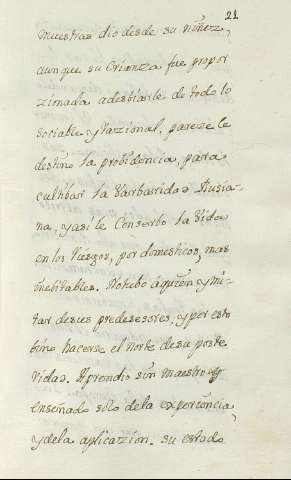 21
muestras dio desde su niñez,
aunque su Crianza fue propor
zionada adesbiarle de todo lo
sociable y razional, pareze le
destino la probidencia, para
cultibar la barbaridad Rusia-
na, y asi le Conserbo la Vida
en los riesgos, por domesticos, mas
inebitables. No tubo a quien ymi-
tar de sus predezesores, y por esto
bino hacerse el norte de su poste
ridad. Aprendio sin Maestro y
enseñado solo de la experiencia,
y de la aplicazion. su estado